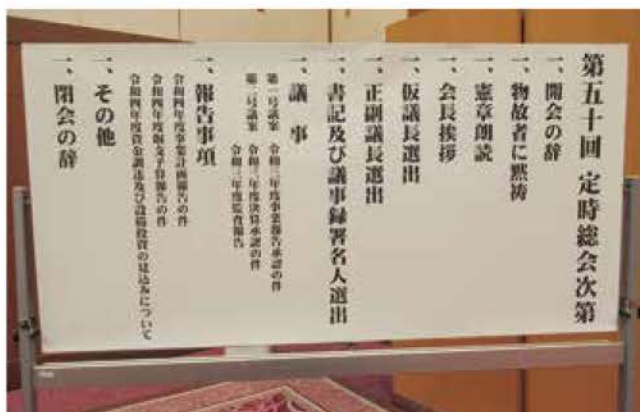 第五十回 定時総会次第
一、開会の辞
一、物故者に黙祷
一、憲章朗読
一、会長挨拶
一、仮議長選出
一、正副議長選出
一、書記及び議事録署名人選出
一、議 事
第一号議案 令和三年度事業報告承認の件
第二号議案 令和三年度決算承認の件
令和三年度監査報告
一、報告事項
令和四年度事業計画報告の件
令和四年度収支予算報告の件
令和四年度資金調達及び設備投資の見込みについて
一、その他
一、閉会の辞